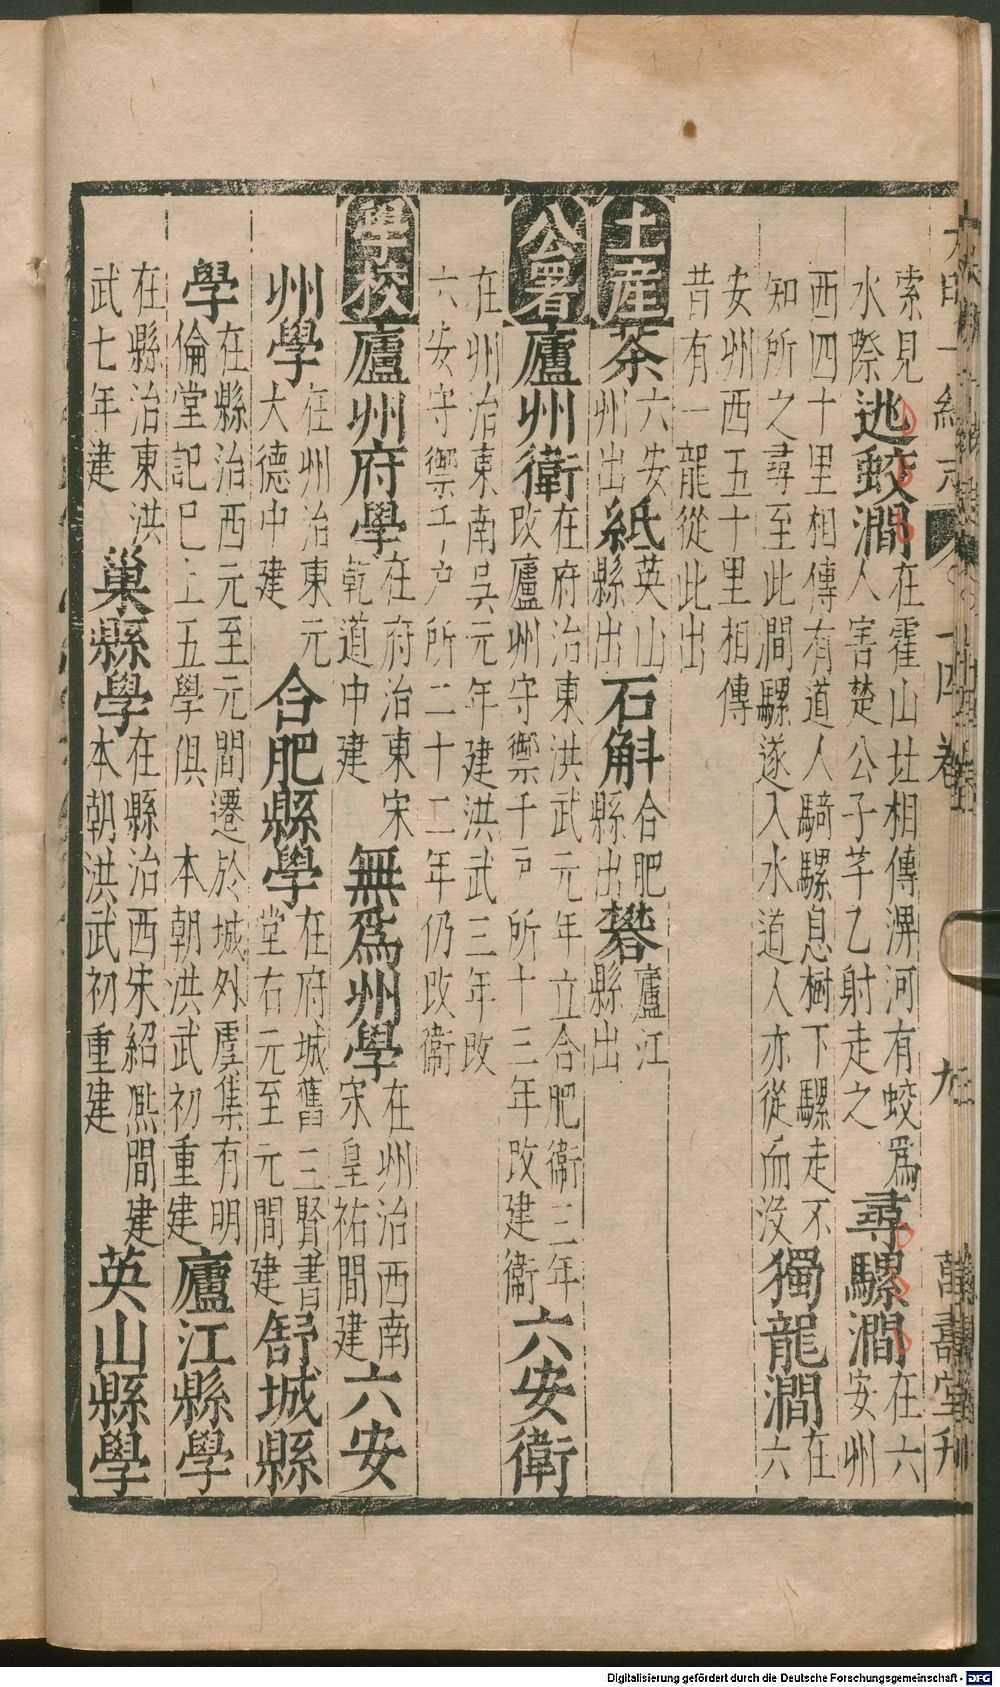 大明一統志 卷 十四卷 九 萬壽堂刊
索見水際逃蛟澗在霍山址相傳淠河有蛟爲人害楚公子芊乙射走之尋騾澗在六安州
西四十里相傳有道人騎騾息樹下騾走不知所之尋至此間騾遂入水道人亦從而沒獨龍澗在六
安州西五十里相傳昔有一龍從此出
土産茶六安州出紙英山縣出石斛合肥縣出礬廬江縣出
公署廬州衛在府治東洪武元年立合肥衞三年改廬州守禦千戸所十三年改建衞六安衛
在州治東南吳元年建洪武三年改六安守禦千戸所二十二年仍改衞
學校廬州府學在府治東宋乾道中建無爲州學在州治西南宋皇祐間建六安
州學在州治東元大德中建合肥縣學在府城舊三賢書堂右元至元間建舒城縣
學在縣治西元至元間遷於城外虞集有明倫堂記已上五學俱 本朝洪武初重建廬江縣學
在縣治東洪武七年建巢縣學在縣治西宋紹熈間建本朝洪武初重建英山縣學
Digitalisierung gefördert durch die Deutsche Forschungsgemeinschaft - DFG